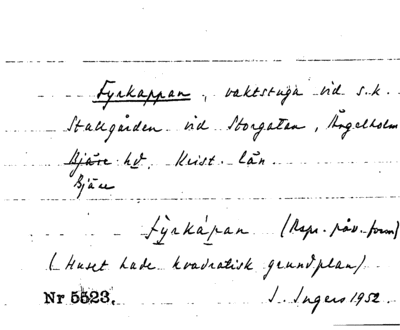 Fyrkappan, vaktstuga vid s.k.
Stallgården vid Storgatan, Ängelholm
Bjäre hd, Krist. län.
Bjäre
fy̱rkápan (Rspr. påv. form)
(Huset hade kvadratisk grundplan)
Nr 5523. I. Ingers 1952.